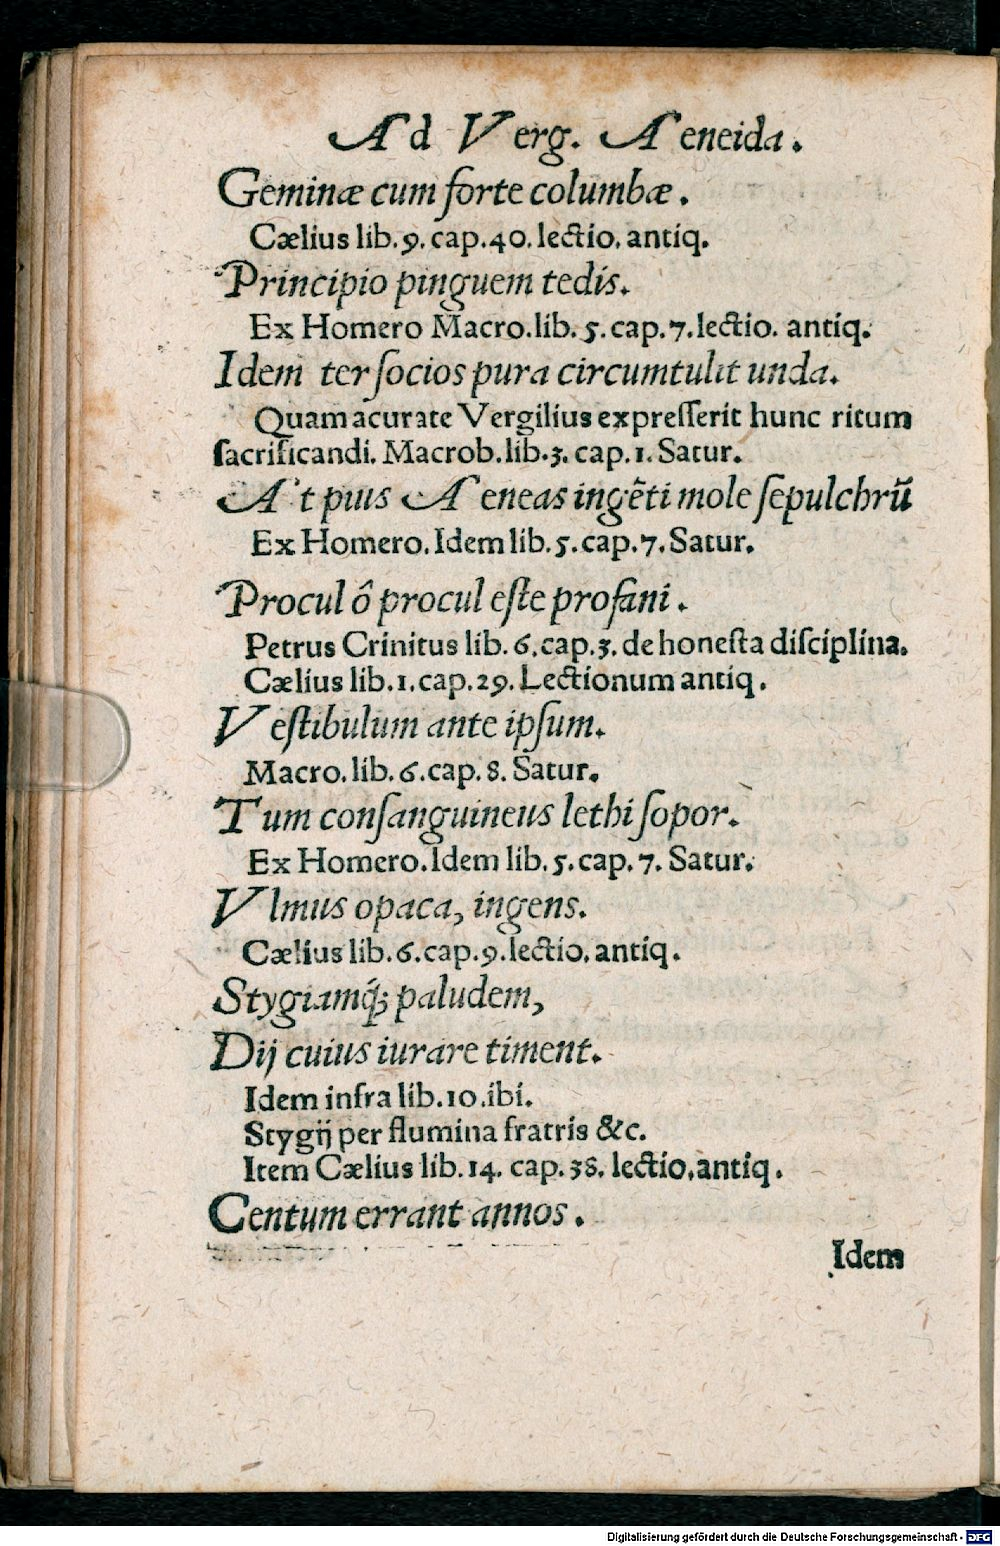 Ad Verg. Aeneida.
Geminæ cum forte columbæ.
Cælius lib. 9. cap. 40. lectio. antiq.
Principio pinguem tedis.
Ex Homero Macro. lib. 5. cap. 7. lectio. antiq.
Idem ter ſocios pura circumtulit unda.
Quam acurate Vergilius expreſſerit hunc ritum
ſacrificandi. Macrob. lib. 3. cap. 1. Satur.
At pius Aeneas ingẽti mole ſepulchrũ
Ex Homero. Idem lib. 5. cap. 7. Satur.
Procul ô procul eſte profani.
Petrus Crinitus lib. 6. cap. 3. de honeſta diſciplina.
Cælius lib. 1. cap. 29. Lectionum antiq.
Veſtibulum ante ipſum.
Macro. lib. 6. cap. 8. Satur.
Tum conſanguineus lethi ſopor.
Ex Homero. Idem lib. 5. cap. 7. Satur.
Vlmus opaca, ingens.
Cælius lib. 6. cap. 9. lectio. antiq.
Stygiamq́; paludem,
Dij cuius iurare timent.
Idem infra lib. 10. ibi.
Stygij per flumina fratris &c.
Item Cælius lib. 14. cap. 38. lectio. antiq.
Centum errant annos.
Idem
Digitalisierung gefördert durch die Deutsche Forschungsgemeinschaft - DFG